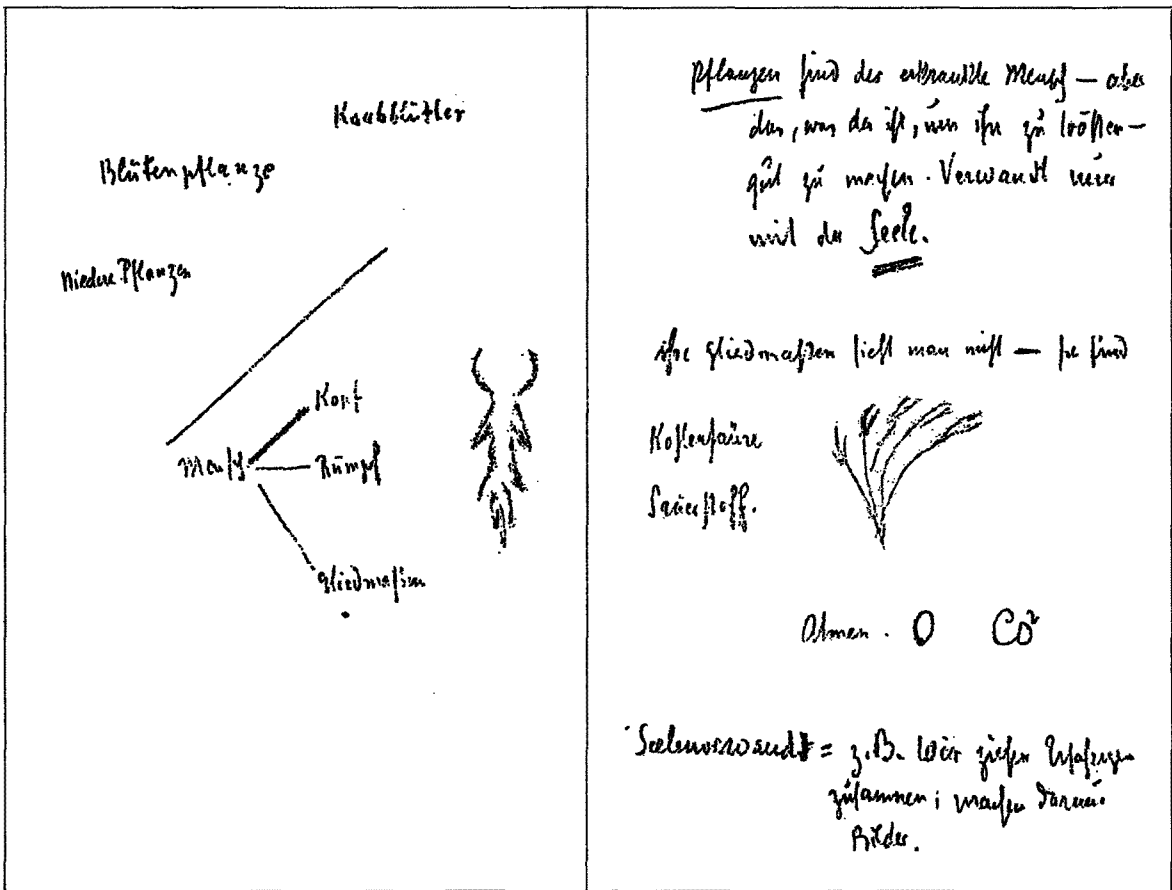 Korbblütler
Blütenpflanze
Niedere Pflanzen
Kopf
Mensch
Rumpf
Gliedmaßen
Pflanzen sind der erkrankte Mensch – aber
das, was da ist, um ihn zu trösten –
gut zu machen. Verwandt nur
mit der Seele.
ihre Gliedmaßen sieht man nicht – sie sind
Kohlensäure
Sauerstoff.
Atmen. O CO²
Seelenverwandt = z.B. Wir ziehen
zusammen; machen daraus
Bilder.